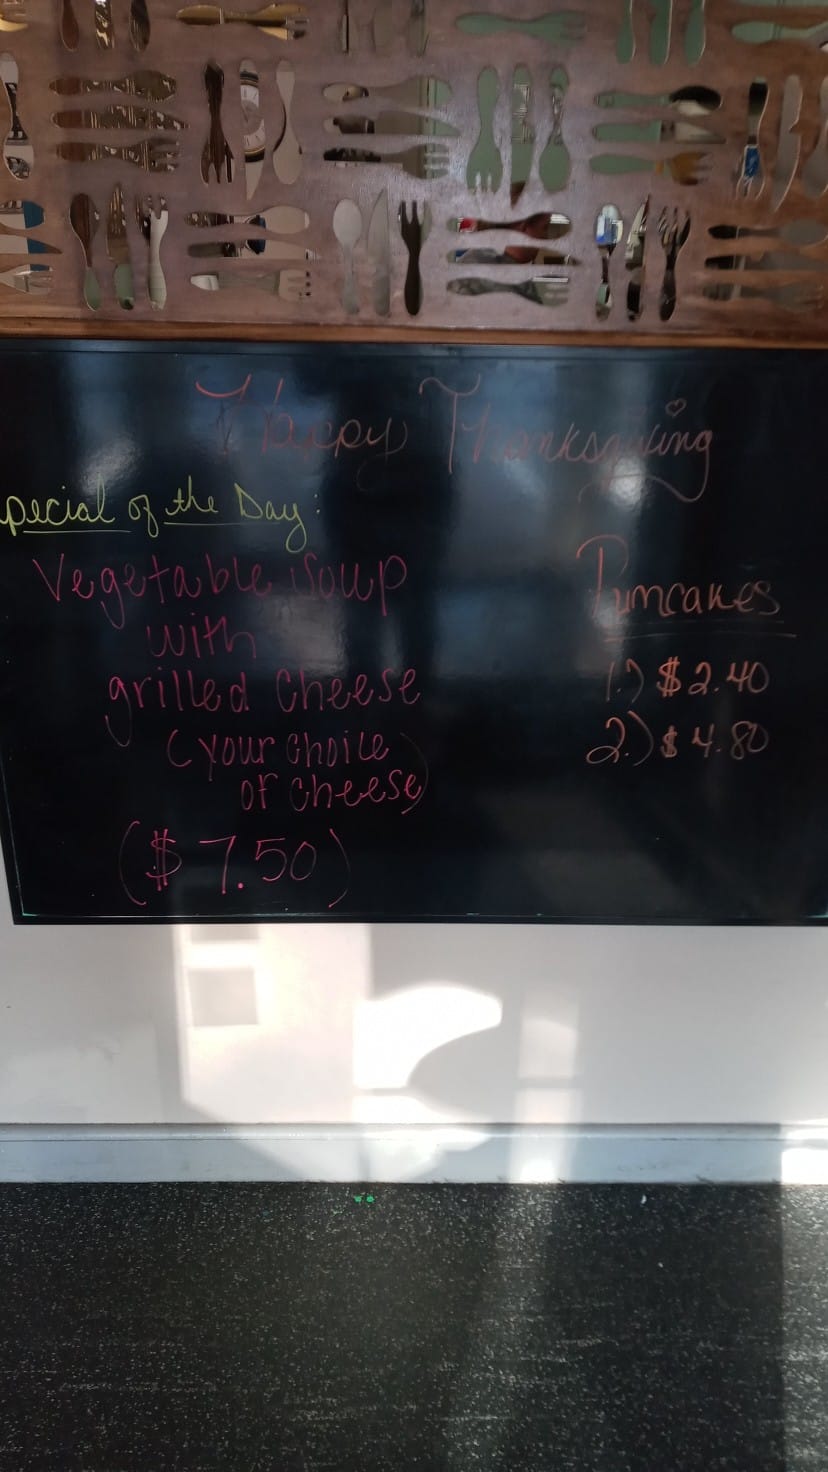 Happy Thanksgiving
pecial of the Day:
Vegetable Soup
with
grilled Cheese
(your choice
of cheese)
($7.50)
Pumcakes
1.) $2.40
2.) $4.80